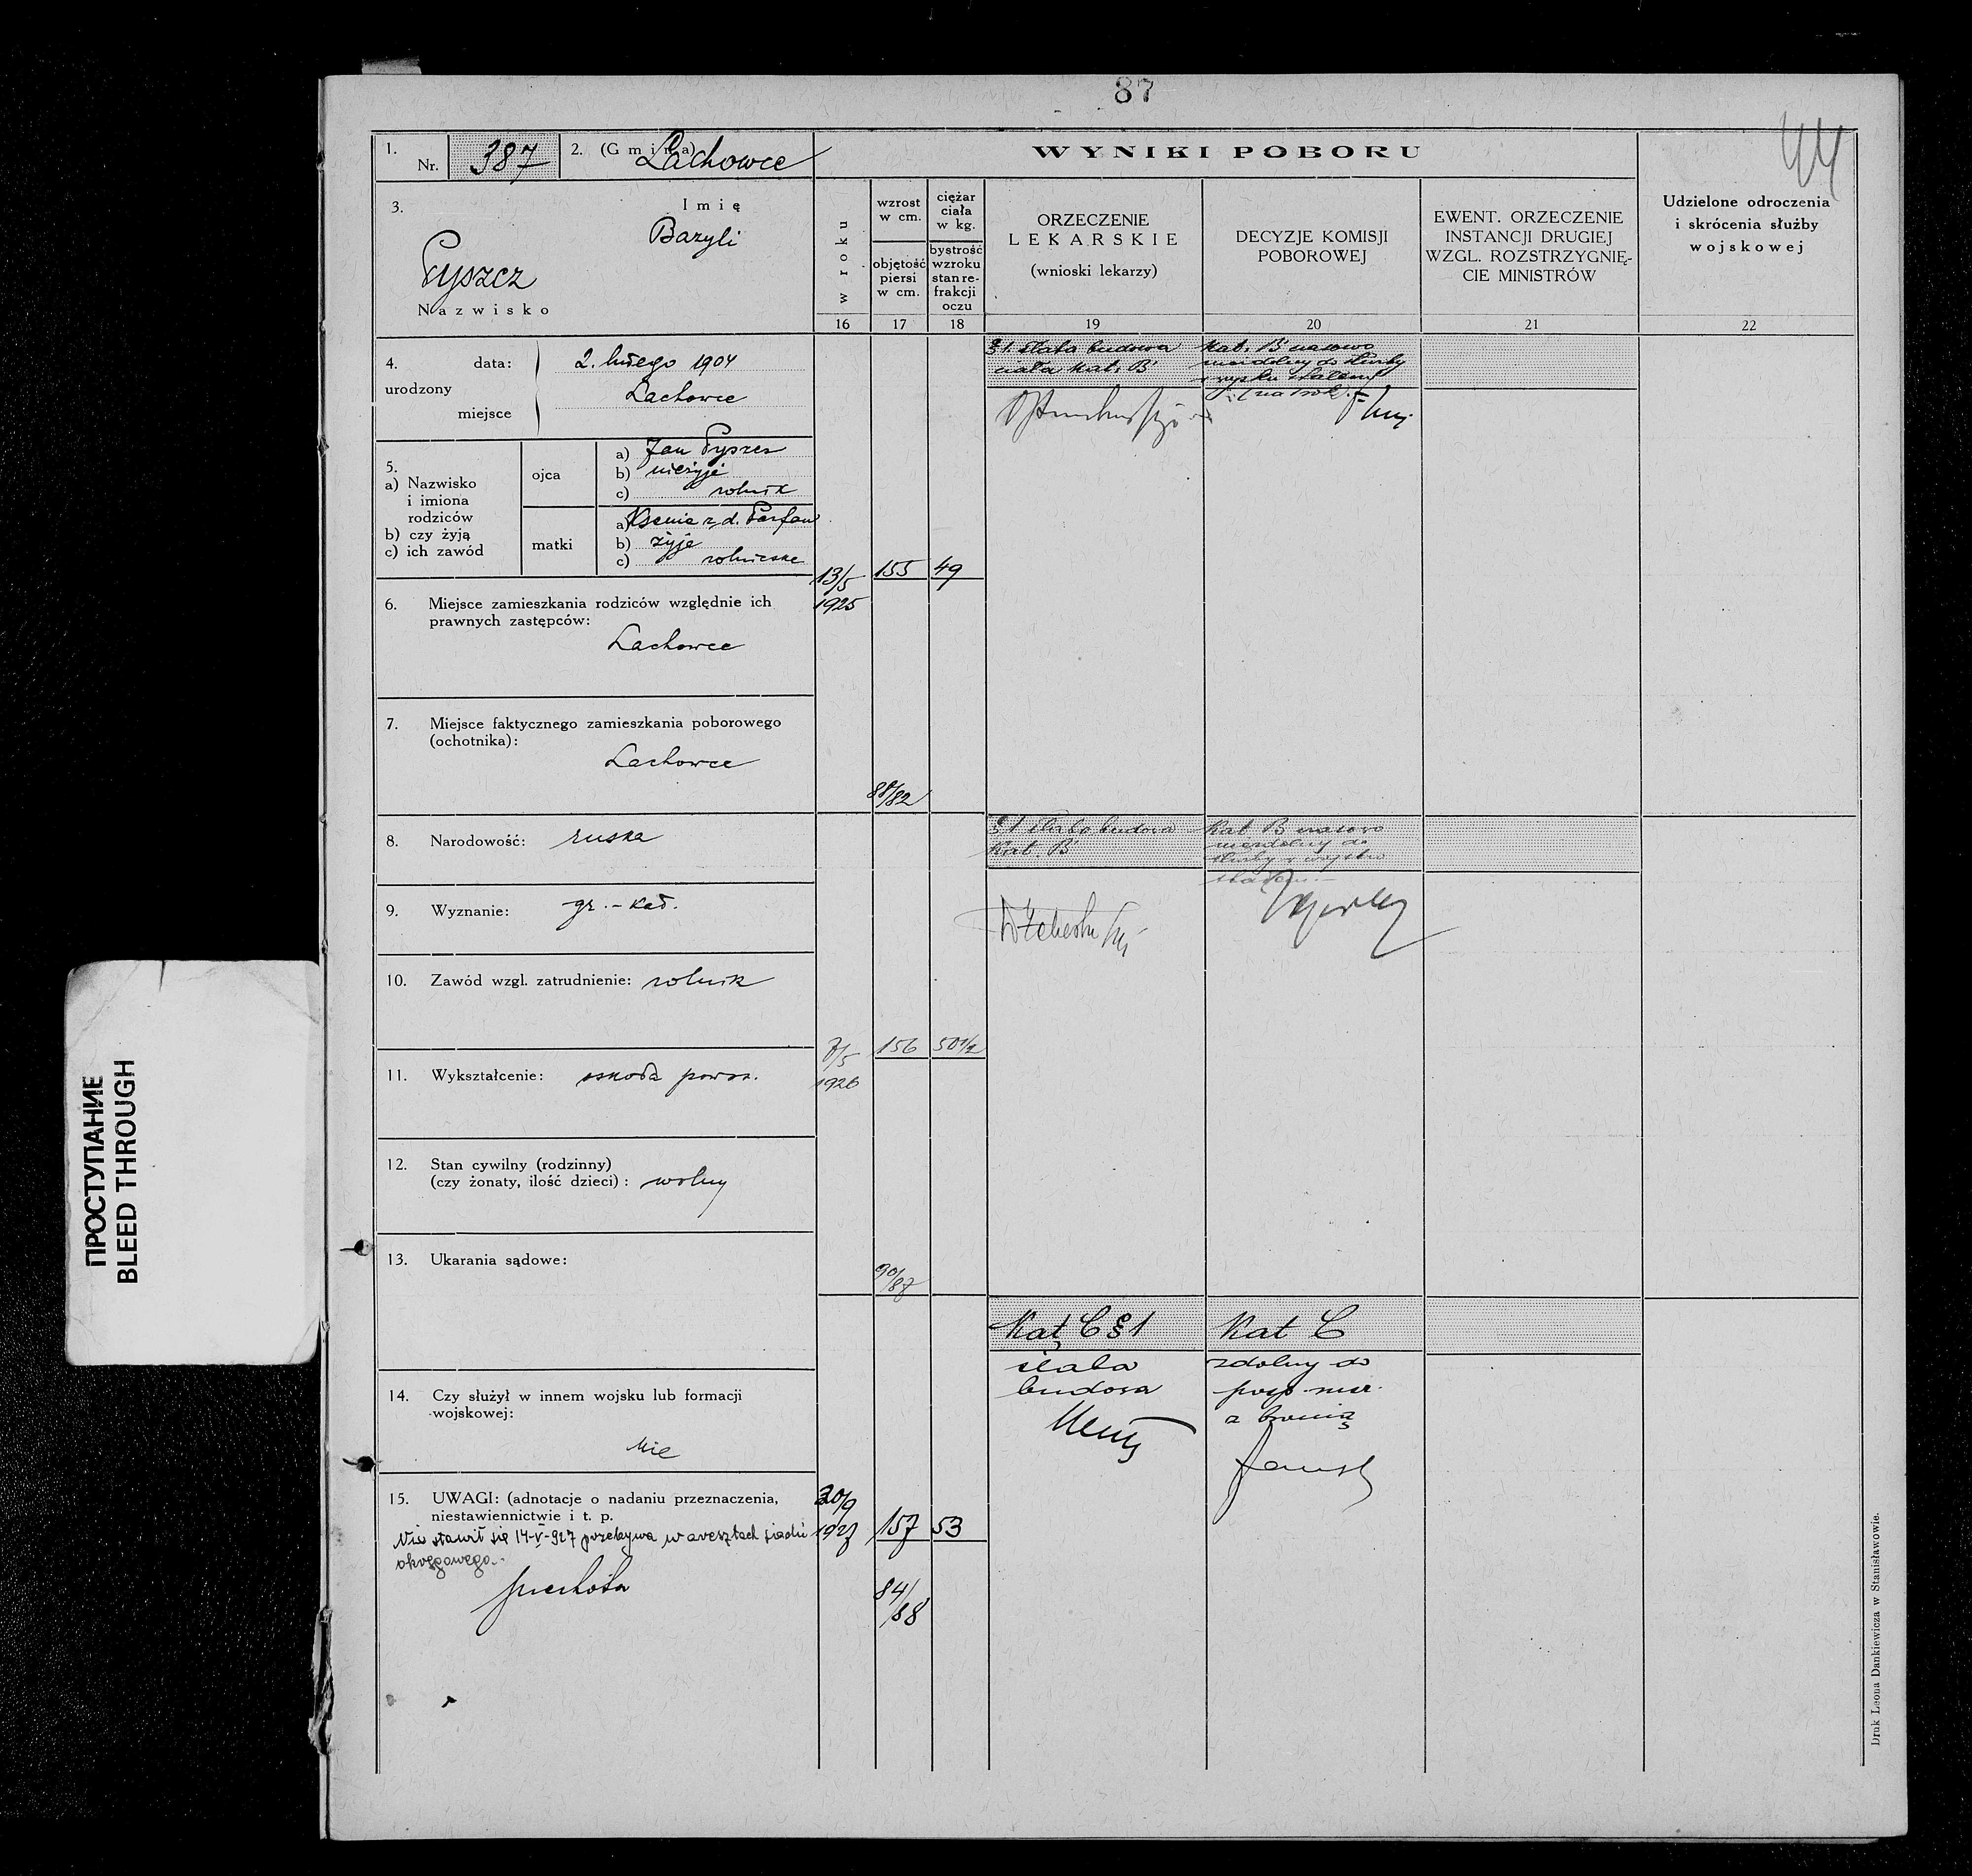 87
44
1. Nr. 387
2. (Gmina) Lachowce
WYNIKI POBORU
3. Imię
Bazyli
Pyszcz
Nazwisko
w roku
wzrost w cm.
objętość piersi w cm.
ciężar ciała w kg.
bystrość wzroku stan refrakcji oczu
ORZECZENIE
LEKARSKIE
(wnioski lekarzy)
DECYZJE KOMISJI
POBOROWEJ
EWENT. ORZECZENIE
INSTANCJI DRUGIEJ
WZGL. ROZSTRZYGNIĘ-
CIE MINISTRÓW
Udzielone odroczenia
i skrócenia służby
wojskowej
16 17 18 19 20 21 22
4. urodzony
data: 2. lutego 1904
miejsce Lachowce
5.
a) Nazwisko
i imiona
rodziców
b) czy żyją
c) ich zawód
ojca
a) Jan Pyszcz
b) nieżyje
c) rolnik
matki
a) Ksenia z d. Parfan
b) żyje
c) rolniczka
6. Miejsce zamieszkania rodziców względnie ich
prawnych zastępców:
Lachowce
7. Miejsce faktycznego zamieszkania poborowego
(ochotnika):
Lachowce
8. Narodowość: ruska
9. Wyznanie: gr.-kat.
10. Zawód wzgl. zatrudnienie: rolnik
11. Wykształcenie: szkoła powsz.
12. Stan cywilny (rodzinny)
(czy żonaty, ilość dzieci): wolny
13. Ukarania sądowe:
14. Czy służył w innem wojsku lub formacji
wojskowej:
Nie
15. UWAGI: (adnotacje o nadaniu przeznaczenia,
niestawiennictwie i t. p.
Nie stawił się 14-V-927 przebywa w aresztach sądu
okręgowego.
13/5
1925
155
49
88/82
§1. słaba budowa
ciała kat. B
Kat. B czasowo
niezdolny do służby
w wojsku stałem
(na rok).
7/5
1926
156
50 1/2
90/87
§1 słaba budowa
Kat. B
Kat. B czasowo
niezdolny do
służby w wojsku
stałem
30/9
1927
157
53
84/88
Kat C §1
słaba
budowa
Kat C
zdolny do
posp. rusz.
z bronią
Druk Leona Dankiewicza w Stanisławowie.
ПРОСТУПАНИЕ
BLEED THROUGH